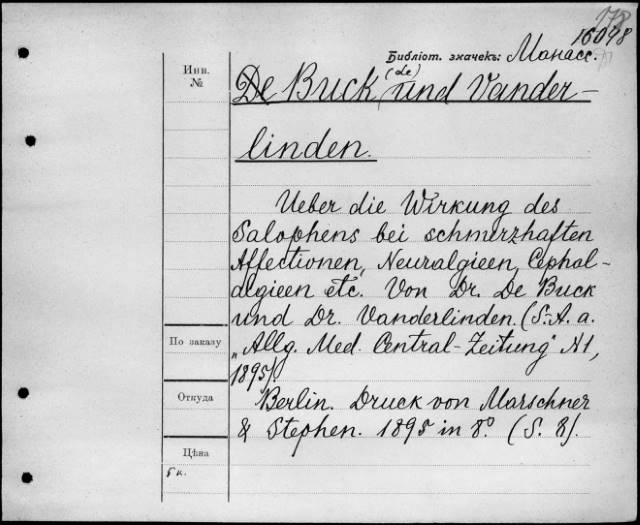 178
16048
Библіот. значекъ: Манасс.
Инв.
№
De Buck (de) und Vander-
linden.
Ueber die Wirkung des
Salophens bei schmerzhaften
Affectionen, Neuralgieen, Cephal-
algieen etc. Von Dr. De Buck
und Dr. Vanderlinden. (S.-A. a.
"Allg. Med. Central-Zeitung" N1,
1895).
Berlin. Druck von Marschner
& Stephen. 1895 in 8º. (S. 8).
По заказу
Откуда
Цѣна
5 к.